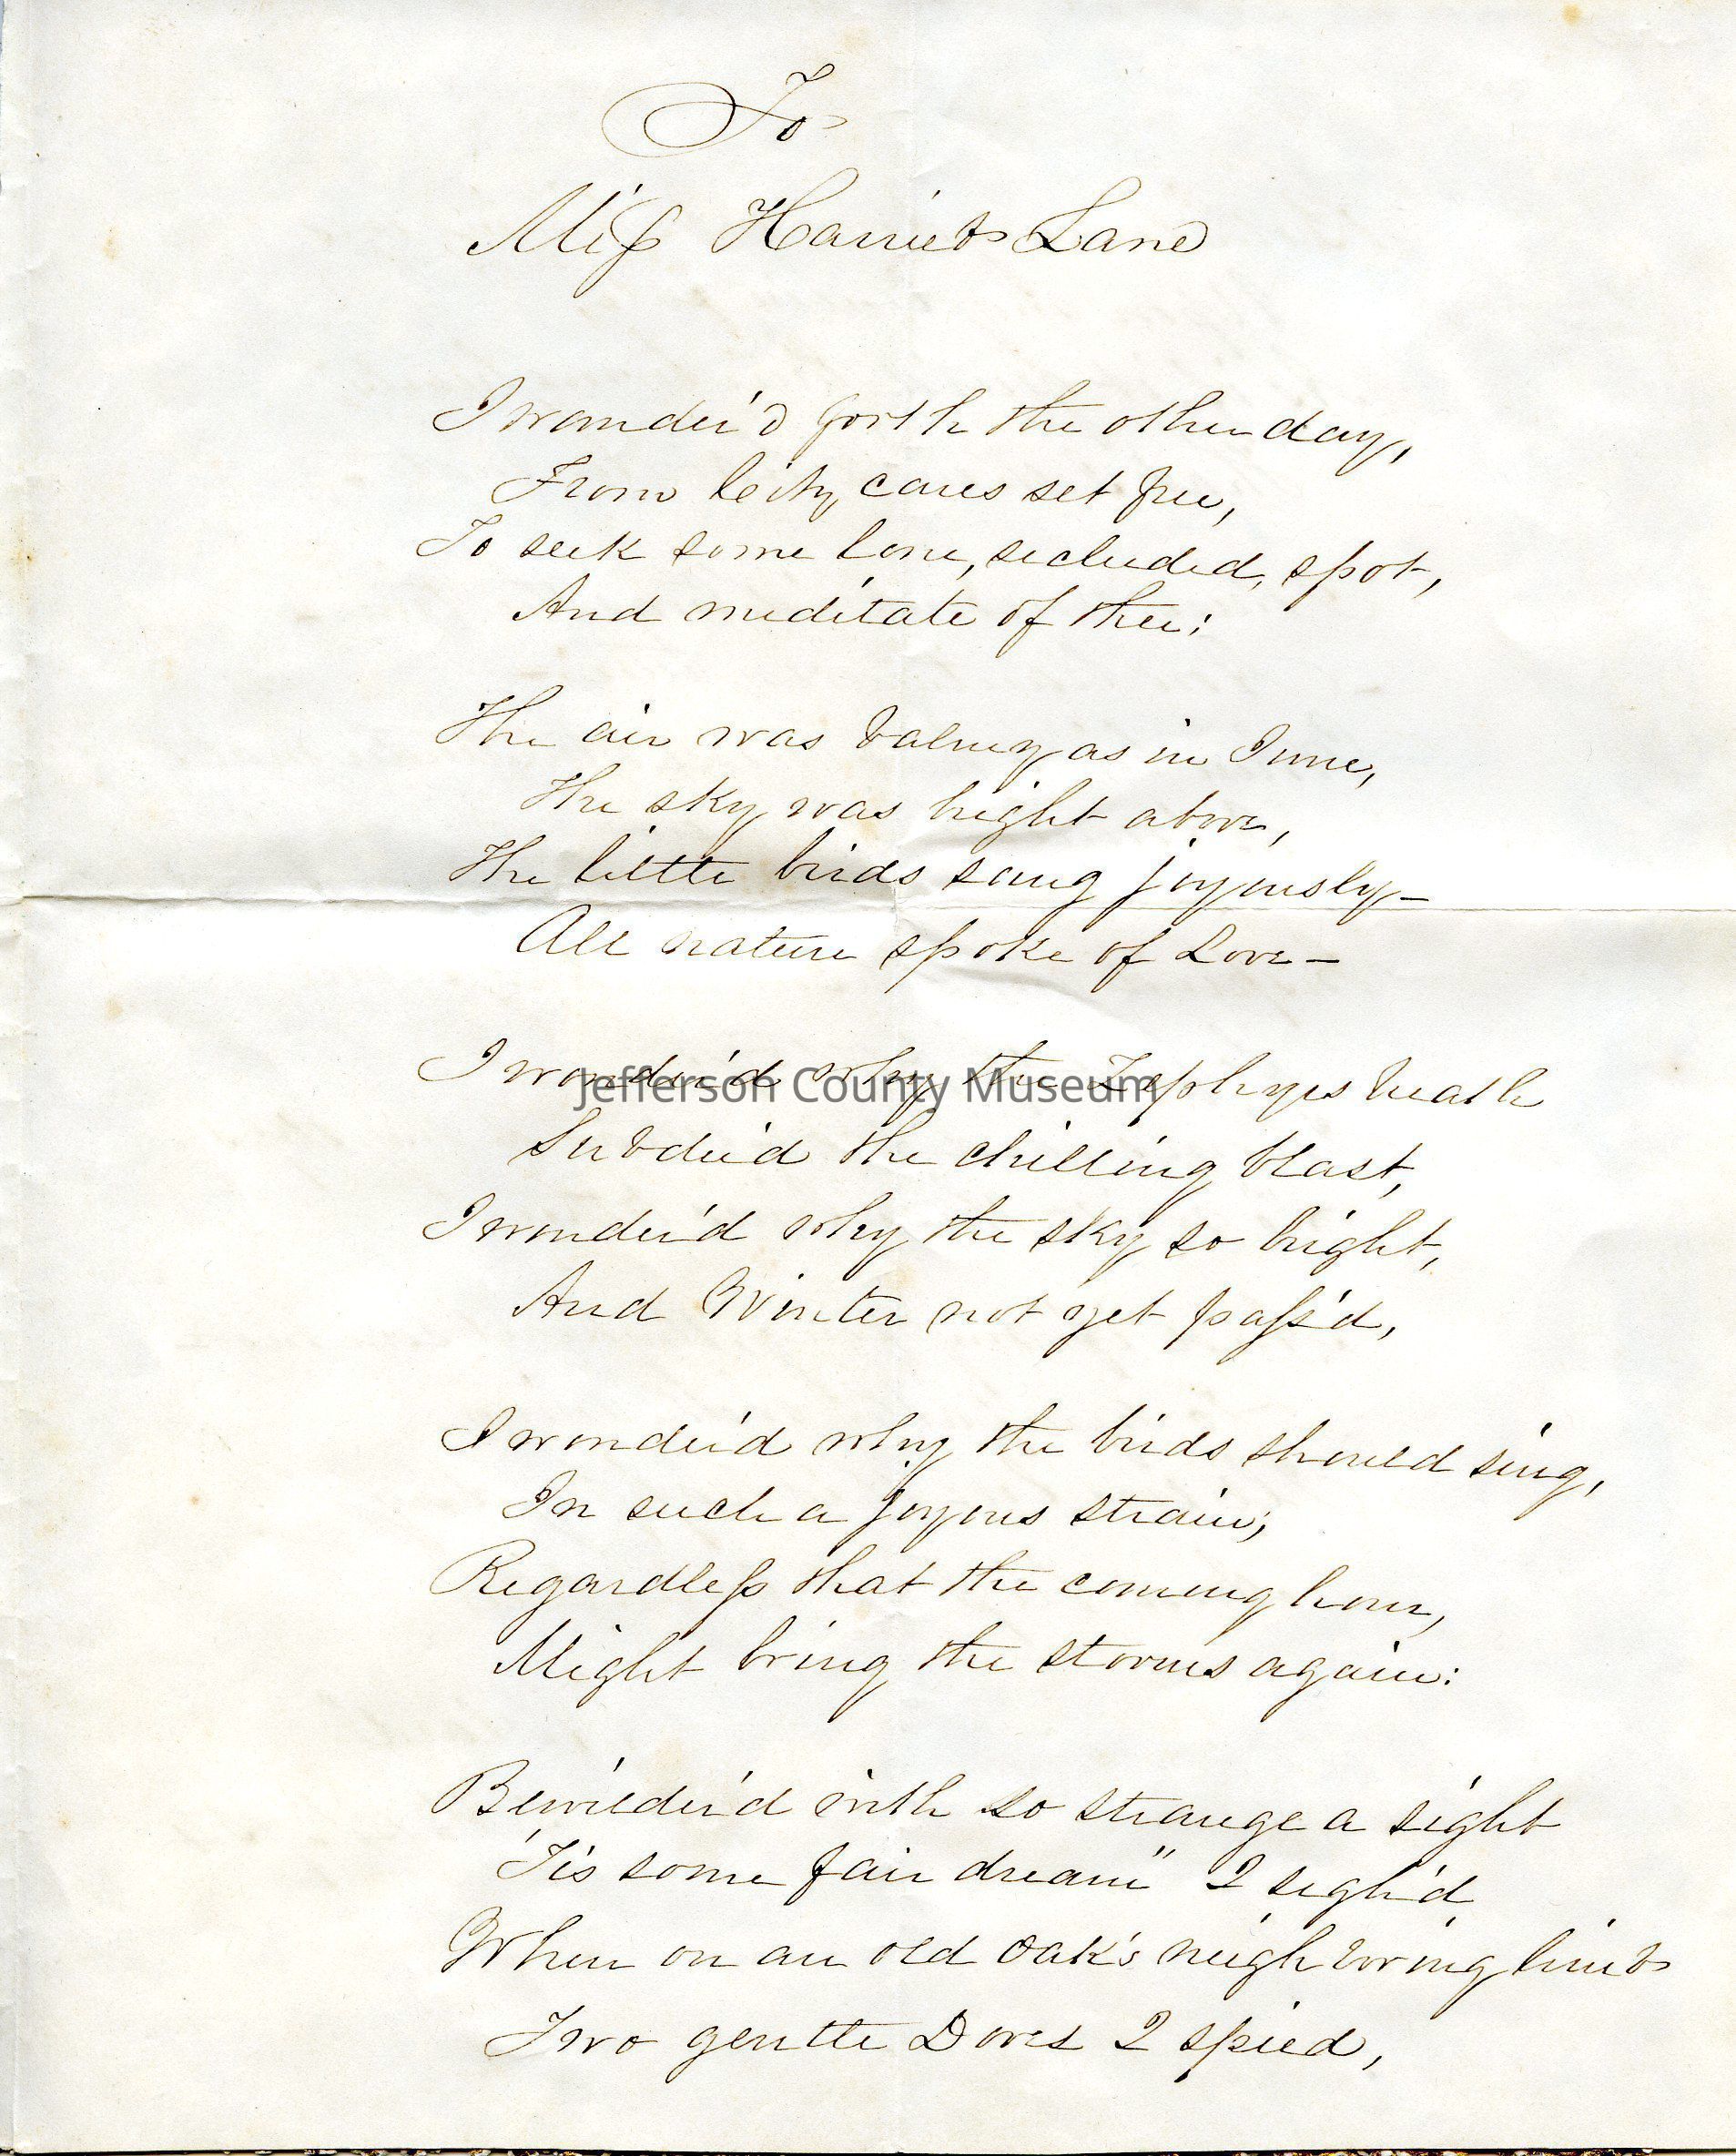 To
Miss Harriet Lane
I wander'd forth the other day,
From City cares set free,
To seek some lone, secluded, spot,
And meditate of thee:
The air was balmy as in June,
The sky was bright above,
The little birds sang joyously—
All nature spoke of Love—
I wonder'd why the Zephyrs breath
Jefferson County Museum
Subdu'd the chilling blast,
I wonder'd why the sky so bright,
And Winter not yet pass'd,
I wonder'd why the birds should sing,
In such a joyous strain;
Regardless that the coming hour,
Might bring the storms again:
Bewilder'd with so strange a sight
'Tis some fair dream" I sigh'd
When on an old oak's neighboring limb
Two gentle Doves I spied,